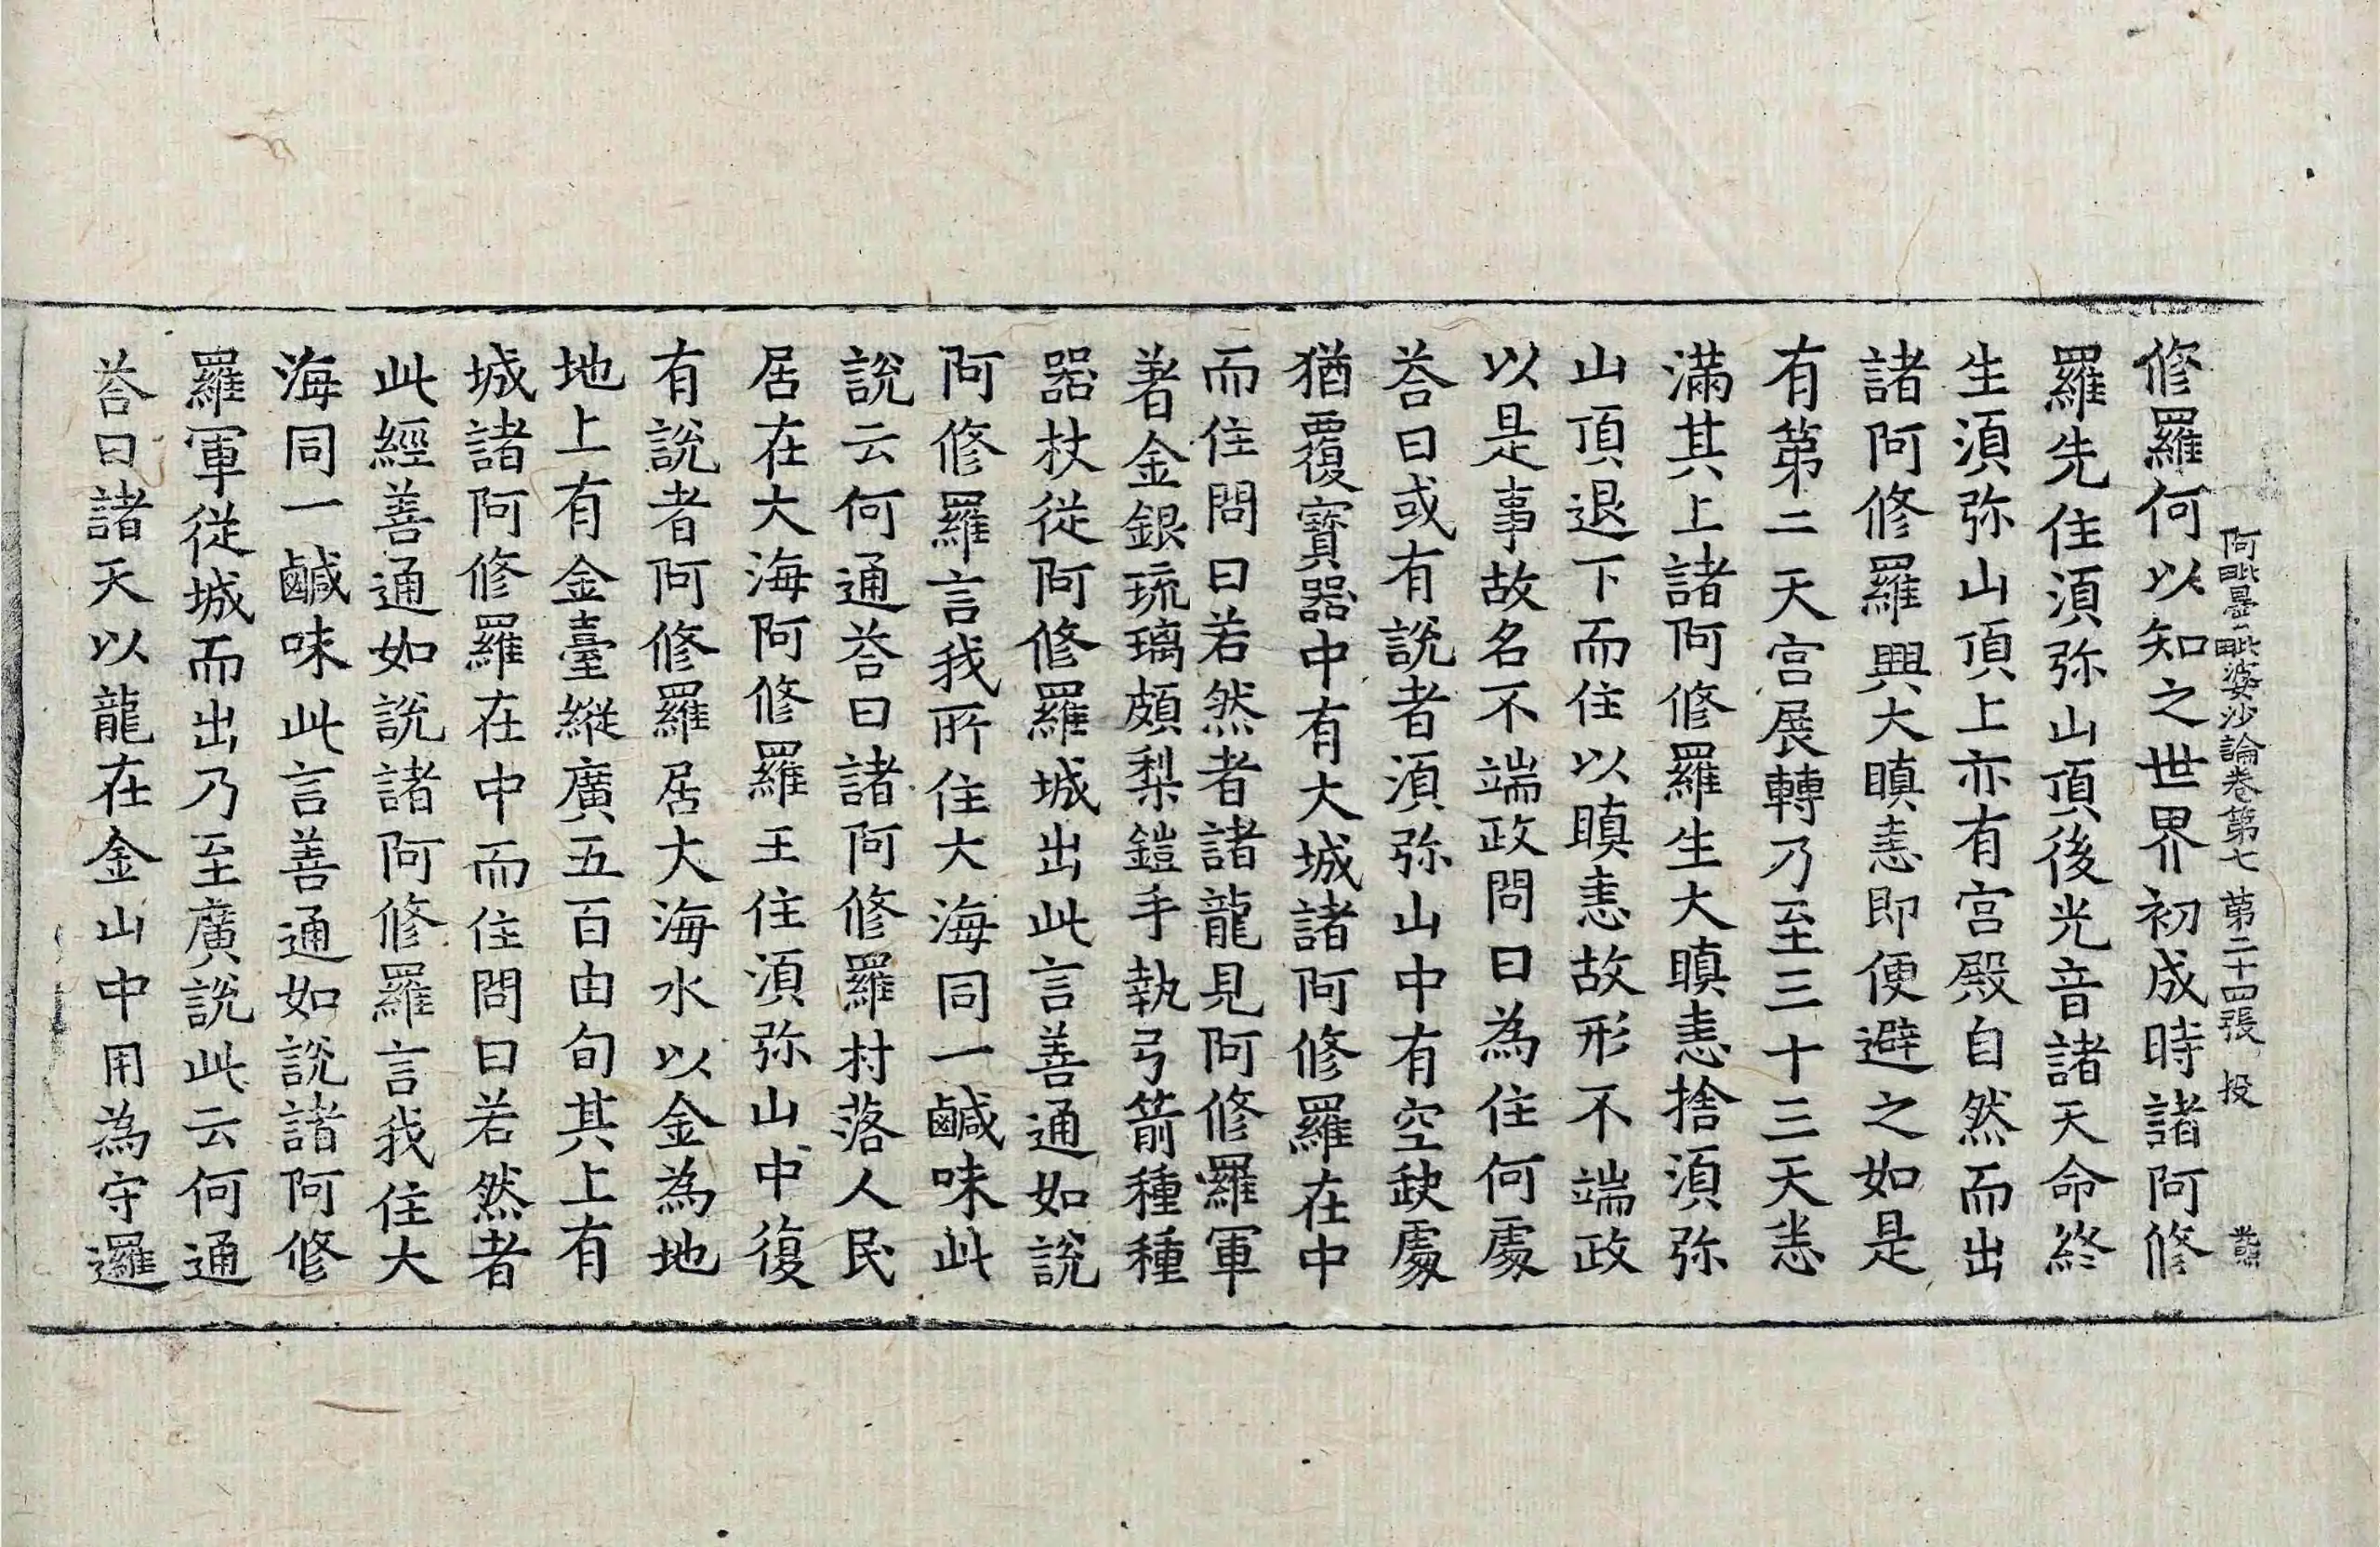 阿毗曇毗婆沙論卷第七 第二十四張 投
修羅何以知之世界初成時諸阿修
羅先住須弥山頂後光音諸天命終
生須弥山頂上亦有宫殿自然而出
諸阿修羅興大瞋恚即便避之如是
有第二天宫展轉乃至三十三天悉
滿其上諸阿修羅生大瞋恚捨須弥
山頂退下而住以瞋恚故形不端政
以是事故名不端政問曰為住何處
荅曰或有説者須弥山中有空缺處
猶覆寳器中有大城諸阿修羅在中
而住問曰若然者諸龍見阿修羅軍
著金銀琉璃頗梨鎧手執弓箭種種
器杖從阿修羅城出此言善通如說
阿修羅言我所住大海同一鹹味此
說云何通荅曰諸阿修羅村落人民
居在大海阿修羅王住須弥山中復
有說者阿修羅居大海水以金為地
地上有金臺縱廣五百由旬其上有
城諸阿修羅在中而住問曰若然者
此經善通如說諸阿修羅言我住大
海同一鹹味此言善通如說諸阿修
羅軍從城而出乃至廣說此云何通
荅曰諸天以龍在金山中用為守邏